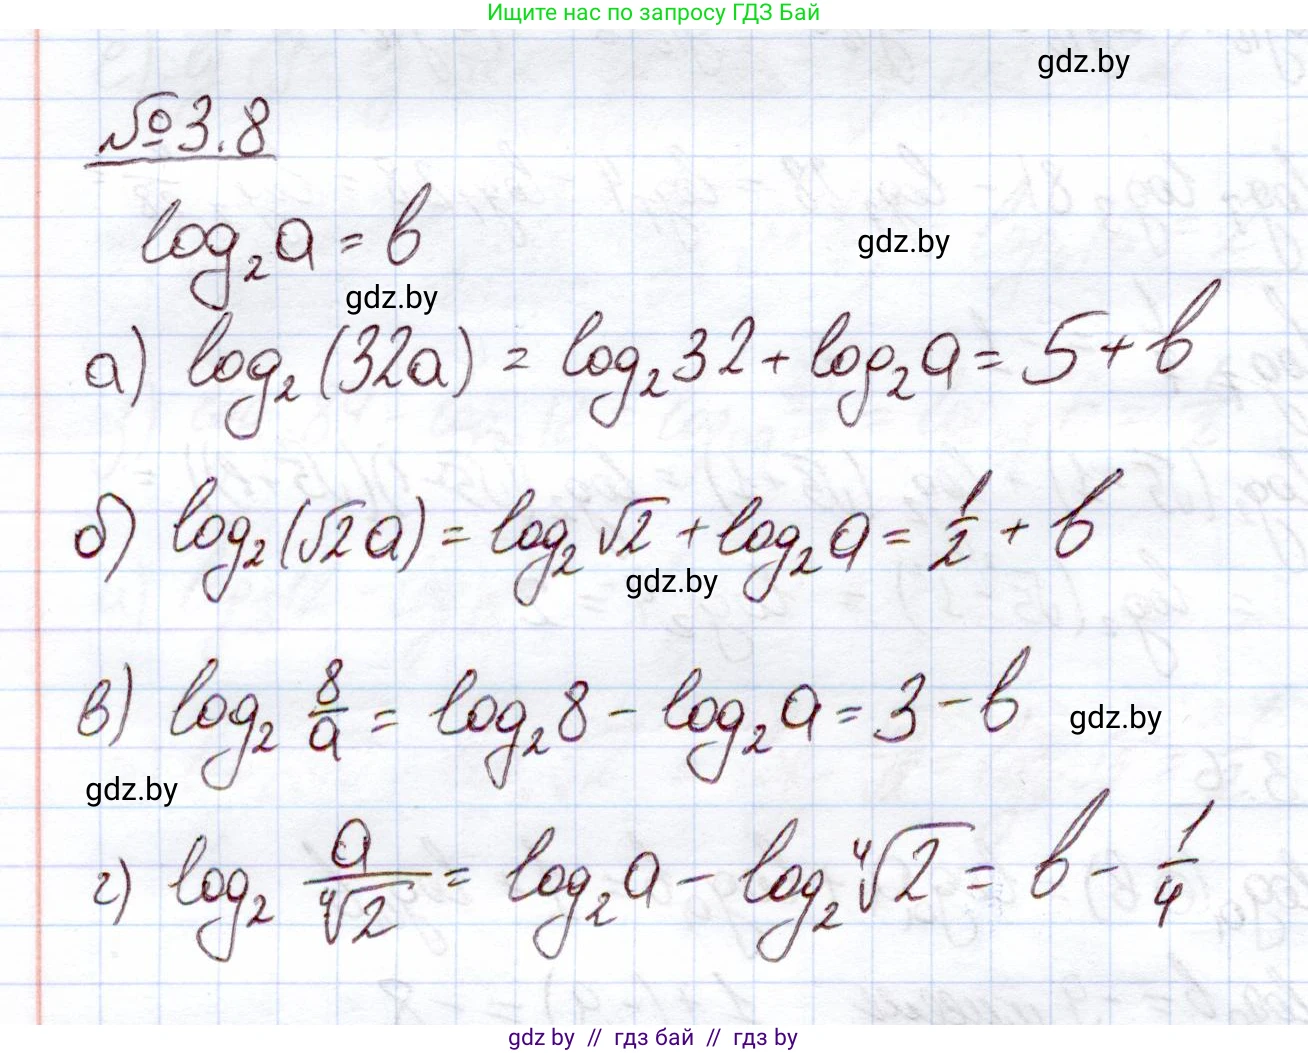 Ищите нас по запросу ГДЗ Бай
gdz.by
№3.8
log₂a = b
gdz.by
gdz.by
а) log₂(32a) = log₂32 + log₂a = 5 + b
б) log₂(√2a) = log₂√2 + log₂a = 1/2 + b
gdz.by
в) log₂ 8/a = log₂8 - log₂a = 3 - b
gdz.by
gdz.by
г) log₂ a/⁴√2 = log₂a - log₂⁴√2 = b - 1/4
gdz.by // гдз бай // гдз by